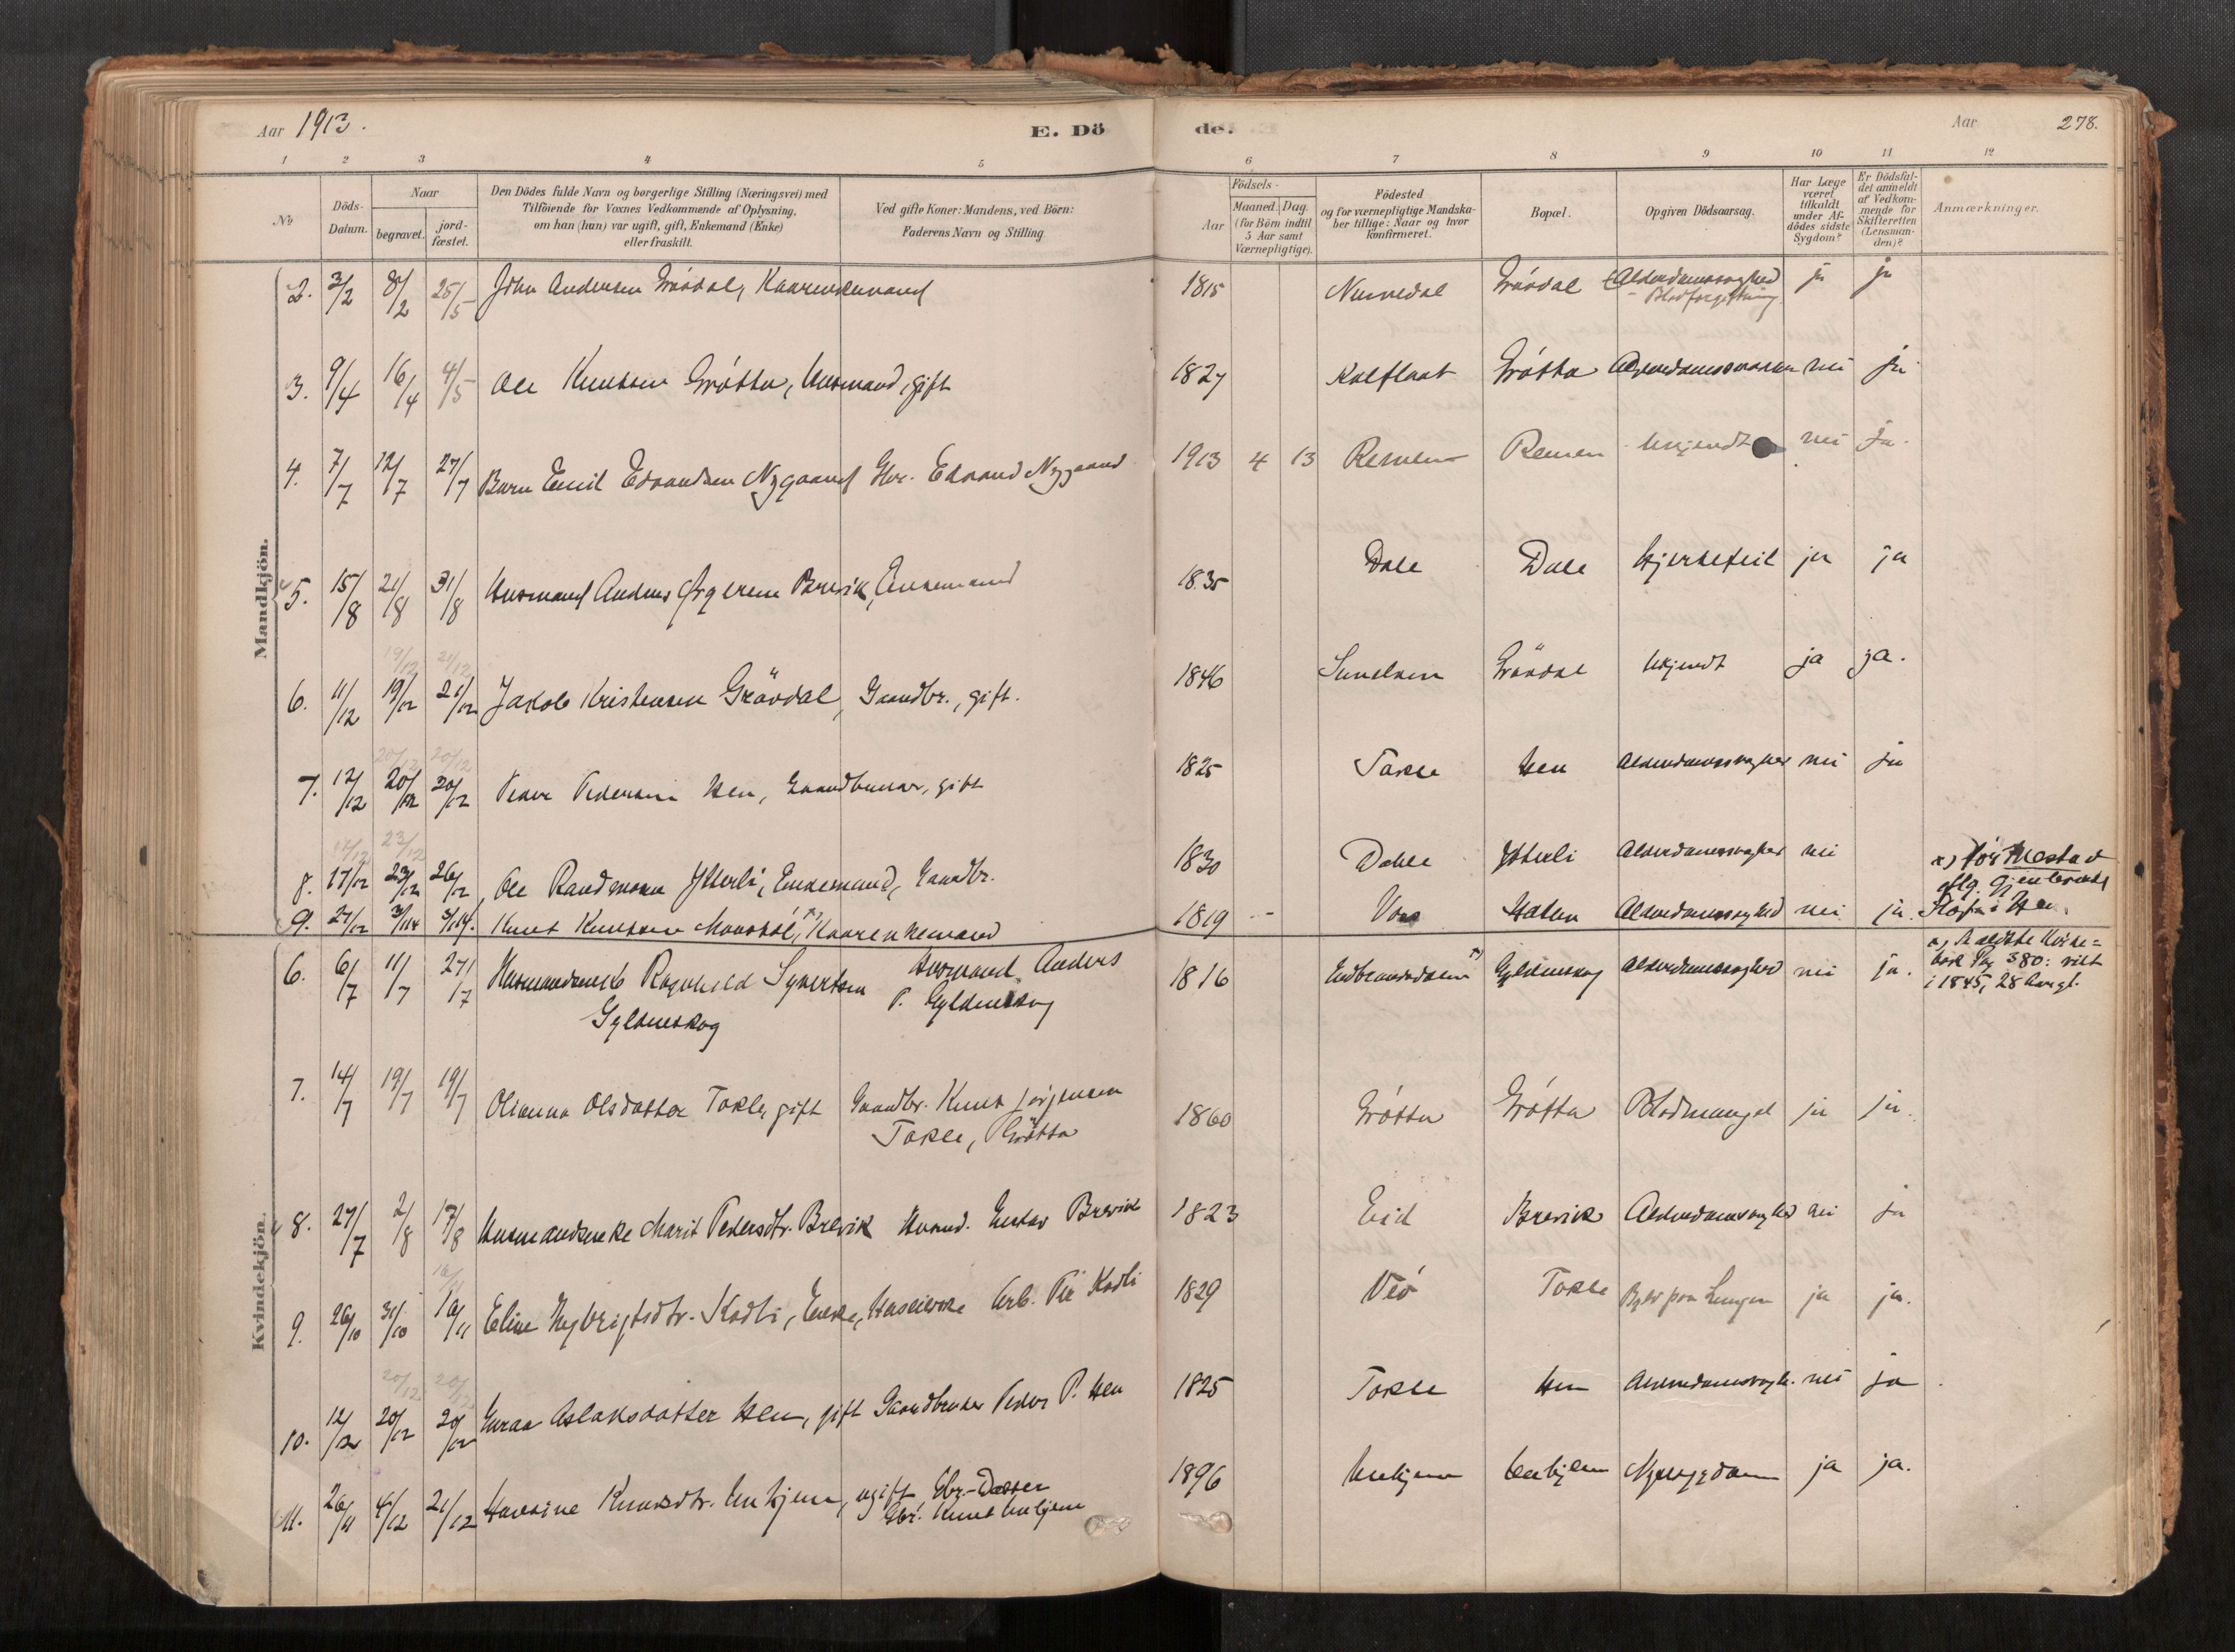 Aar 1913.
E. Dö
de.
Aar
278.
1 2 3 4 5 6 7 8 9 10 11 12
No
Döds-Datum.
Naar
begravet.
jord-fæstet.
Den Dödes fulde Navn og borgerlige Stilling (Næringsvei) med
Tilföiende for Voxnes Vedkommende af Oplysning,
om han (hun) var ugift, gift, Enkemand (Enke)
eller fraskilt.
Ved gifte Koner: Mandens, ved Börn:
Faderens Navn og Stilling
Födsels-
Aar
Maaned. Dag.
(for Börn indtil
5 Aar samt
Værnepligtige).
Födested
og for værnepligtige Mandska-
ber tillige: Naar og hvor
konfirmeret.
Bopæl.
Opgiven Dödsaarsag.
Har Læge
været
tilkaldt
under Af-
dödes sidste
Sygdom?
Er Dödsfal-
det anmeldt
af Vedkom-
mende for
Skifteretten
(Lensman-
den)?
Anmærkninger.
Mandkjön.
2. 3/2 8/2 25/5 John Andersen Grövdal, Kaarenkemand 1815 Grövdal Alderdomssvaghed ja ja
- Blodforgiftning
3. 9/4 16/4 4/5 Ole Knutsen Grötta, Husmand, gift 1827 Kalflaat Grötta nei ja
4. 7/7 12/7 27/7 Barn Emil Edvardsen Nygaard Gbr. Edvard Nygaard 1913 4 13 Remen Remen Ukjendt nei ja.
5. 15/8 21/8 31/8 Husmand Anders Brevik, Enkemand 1835 Dale Dale Hjertefeil ja ja
19/12 21/12
6. 11/12 19/12 21/12 Jakob Kristensen Grövdal, Gaardbr., gift. 1846 Grövdal Ukjendt ja ja.
20/12 20/12
7. 12/12 20/12 20/12 Peder Pedersen Hen, Gaardbruker, gift 1825 Tokle Hen Alderdomssvaghed nei ja
23/12
8. 17/12 23/12 26/12 Ole Ytterli, Enkemand, Gaardbr. 1830 Dahle Ytterli Alderdomssvaghed nei
9. 27/12 3/1 14 3/1 14. Knut Knutsen x) Kaarenkemand 1819 Vos Alderdomssvaghed nei ja.
x) för Mestad
Hen.
Kvindekjön.
6. 6/7 11/7 27/7 Ragnhild Syvertsen Husmand Anders 1816 Gudbrandsdalen x) Gyldenskog Alderdomssvaghed nei ja.
Gyldenskog P. Gyldenskog
bok Pag 380:
i 1845, 28
7. 14/7 19/7 19/7 Olianna Olsdatter Tokle, gift Gaardbr. Knut Jörgensen 1860 Grötta Grötta Blodmangel ja ja.
Tokle, Grötta
8. 27/7 2/8 17/8 Husmandsenke Marit Pedersdtr. Brevik Husmd. Gustav Brevik 1823 Eid Brevik Alderdomssvaghed nei ja
16/11
9. 26/10 31/10 16/11 Eline Kadli, Enke, Arb. Kadli 1829 Veö Tokle ja ja.
20/12 20/12
10. 12/12 20/12 20/12 Guraa Aslaksdatter Hen, gift Gaardbruker Peder P. Hen 1825 Tokle Hen Alderdomssvagh. nei ja
11. 26/11 4/12 21/12 Knudsdtr. Unhjem, ugift Gbr-Datter 1896 Unhjem Unhjem ja ja.
Gbr. Knut Unhjem